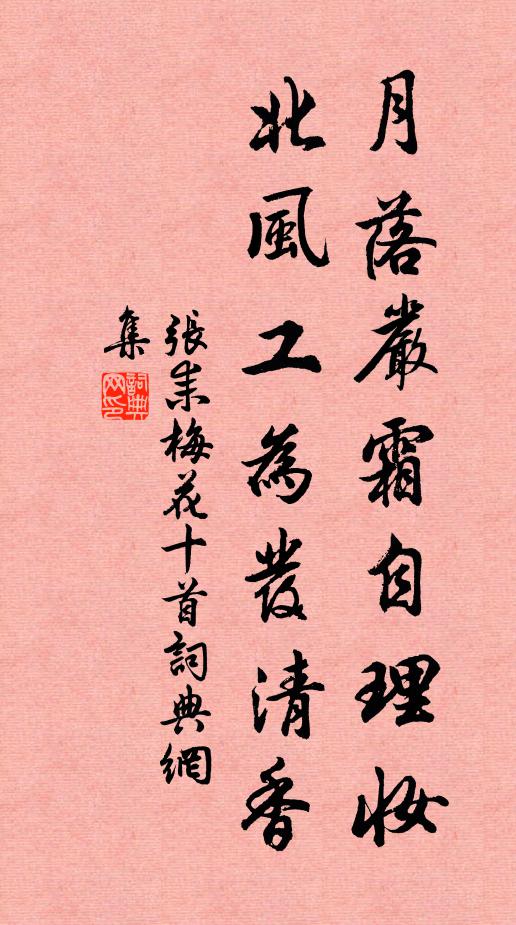 月落嚴霜自理妝
北風工為發清香
張耒梅花十首詞典網
集
詞典
网印